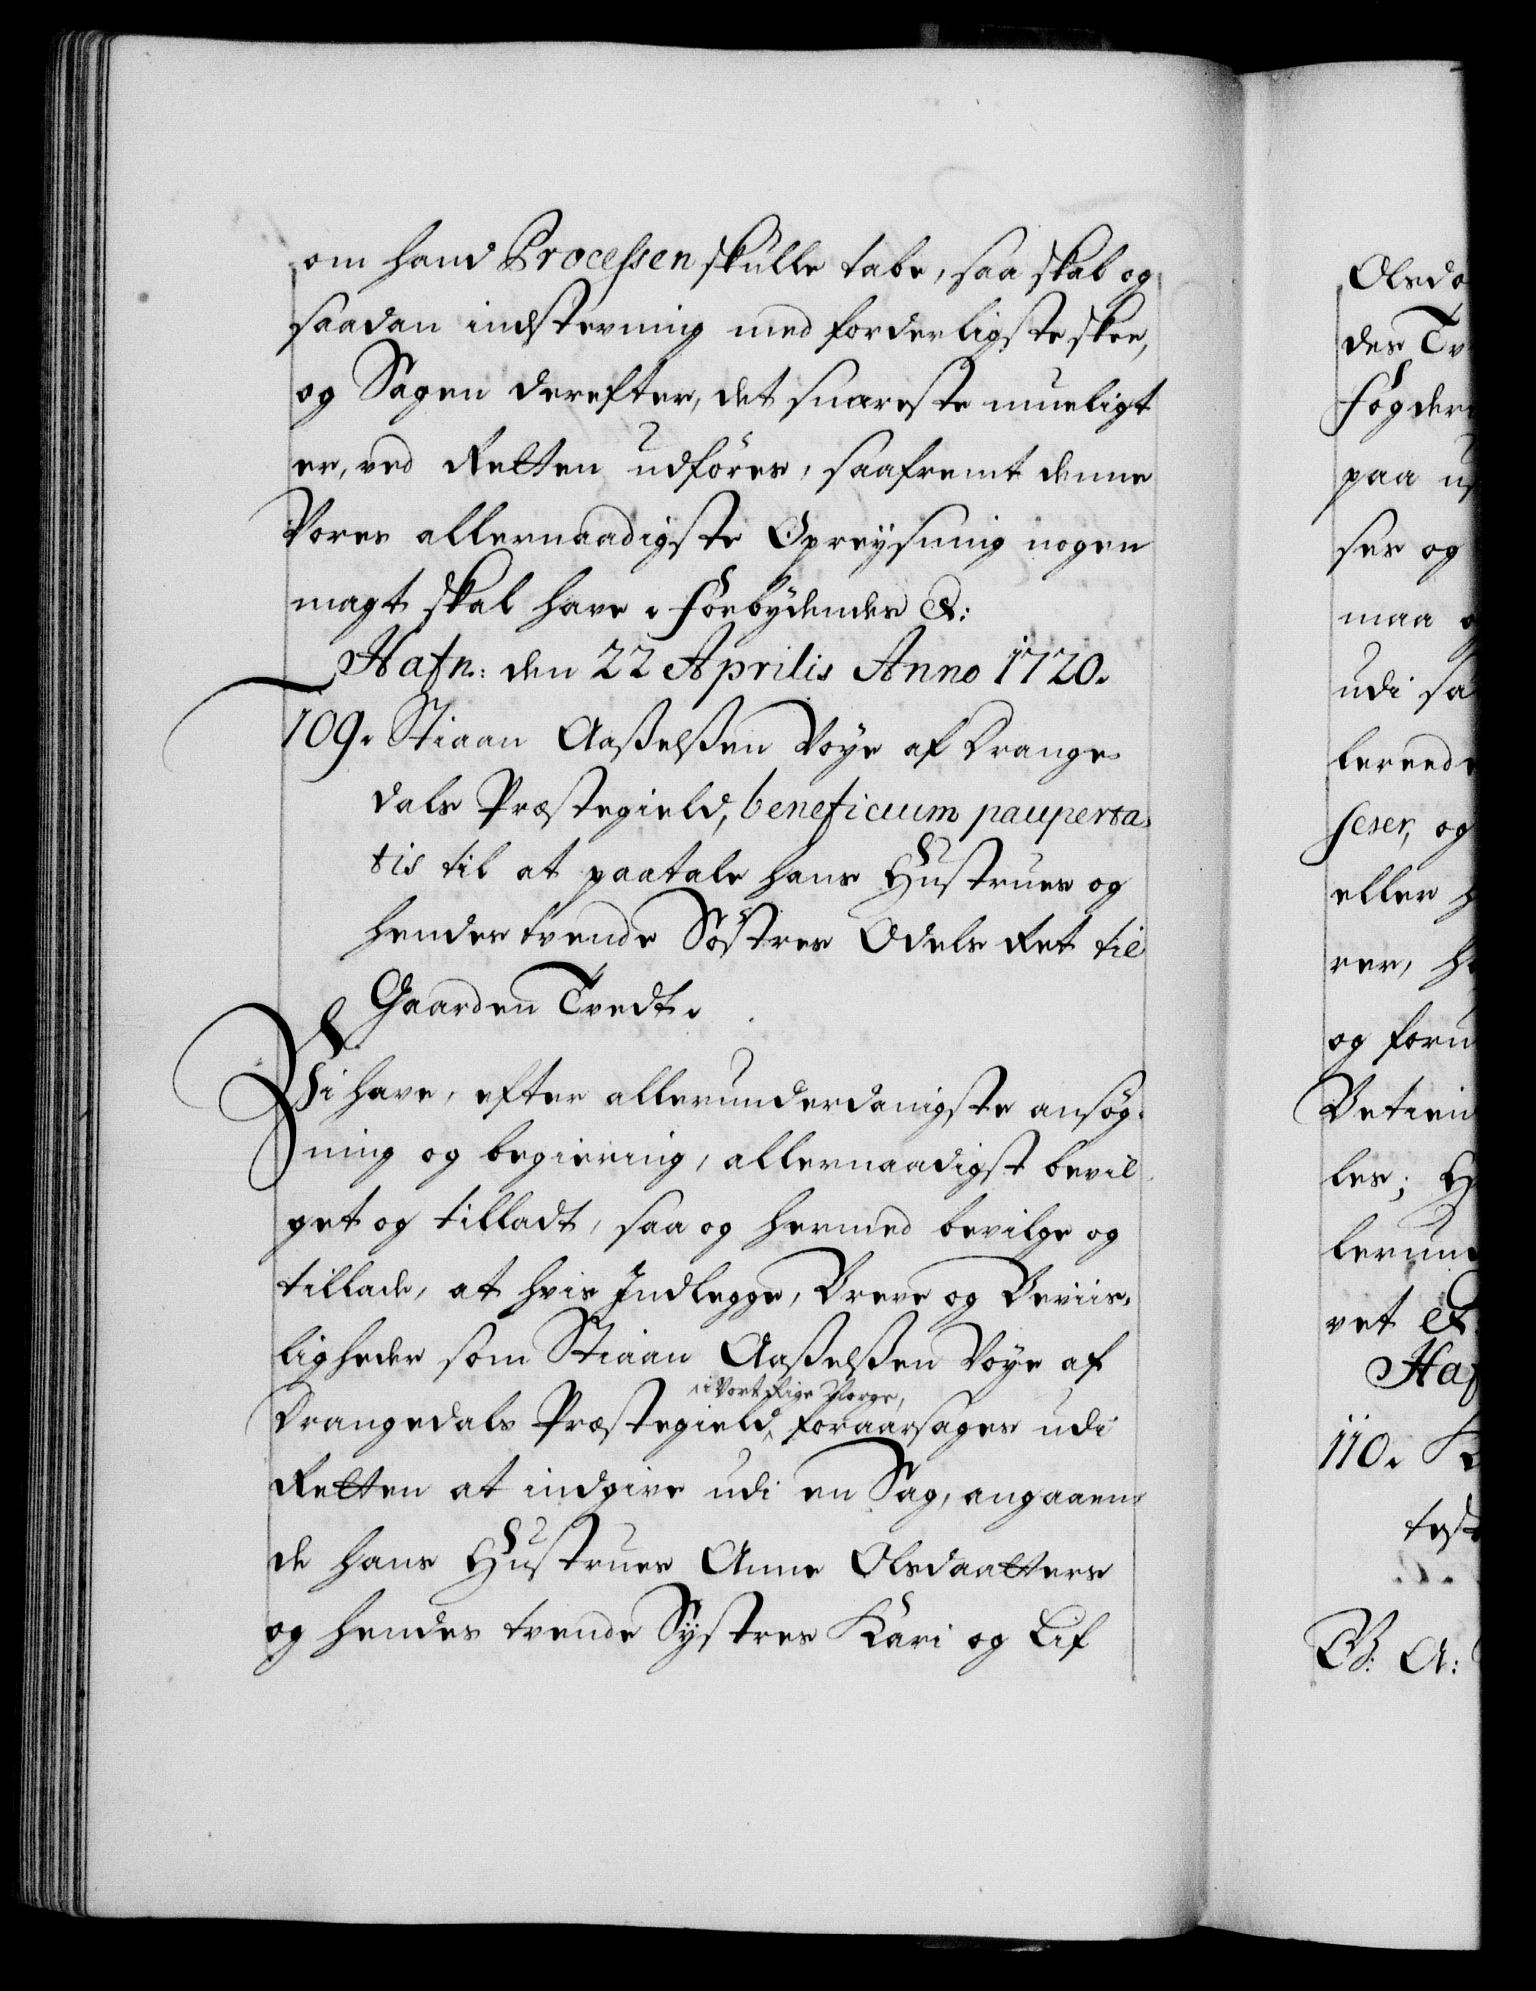 om hand Processen skulle tabe, saa skal og
saadan indstevning med forderligste skee,
og Sagen derefter, det snareste mueligt
er, ved Retten udføres, saafremt denne
Vores allernaadigste Opreysning nogen
magt skal have. Forbydendes &:
Hafn: den 22 Aprilis Anno 1720.
109. Stiaan Aaßelßen Voye af Drange-
dals Præstegield, beneficium pauperta-
tis til at paatale hans Hustrues og
hendes tvende Søstres Odels Ret til
Gaarden Tvedt.
Vi have, efter allerunderdanigste ansøg-
ning og begiering, allernaadigst bevil-
get og tilladt, saa og hermed bevilge og
tillade, at hvis Indlegge, Breve og Beviis-
ligheder som Stiaan Aaßelßen Voye af
i Vort Rige Norge,
Drangedals Præstegield, foraarsages udi
Retten at indgive udi en Sag, angaaen-
de hans Hustrues Anne Olsdaatters
og hendes tvende Systres Kari og Lif
Olsda
des Tv
Fogderi
paa u
ses og
maa o
udi sa
lereede
feser, og
eller h
rer, h
og foru
Betien
les; H
lerun
vet &.
Haf
110. K
test
B: A: